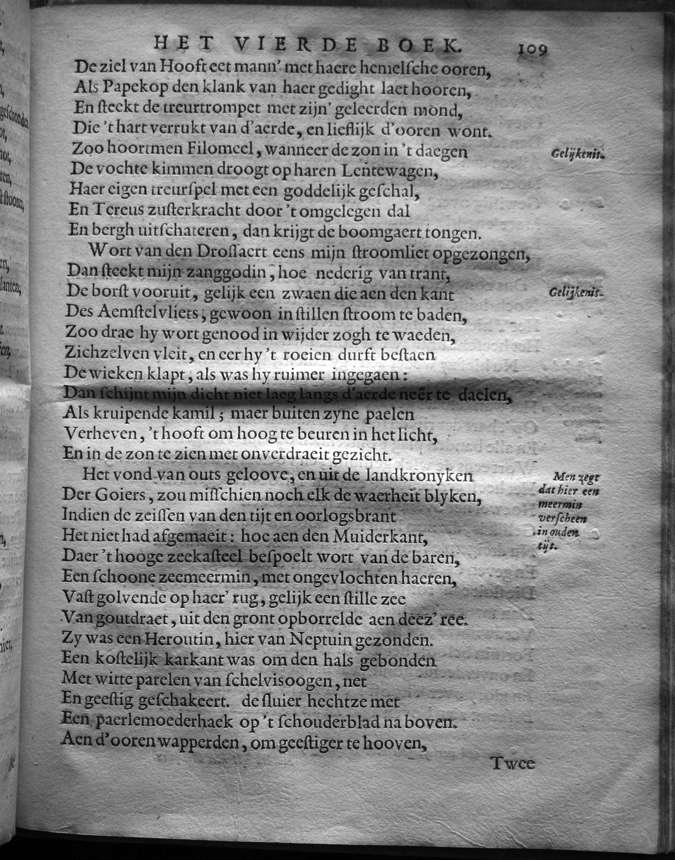 HET VIERDE BOEK. 109
De ziel van Hooft eet mann' met haere hemelsche ooren,
Als Papekop den klank van haer gedight laet hooren,
En steekt de treurtrompet met zijn' geleerden mond,
Die 't hart verrukt van d'aerde, en lieflijk d'ooren wont.
Zoo hoortmen Filomeel, wanneer de zon in 't daegen
Gelijkenis.
De vochte kimmen droogt op haren Lentewagen,
Haer eigen treurspel met een goddelijk geschal,
En Tereus zusterkracht door 't omgelegen dal
En bergh uitschateren, dan krijgt de boomgaert tongen.
Wort van den Drossaert eens mijn stroomliet opgezongen,
Dan steekt mijn zanggodin, hoe nederig van trant,
De borst vooruit, gelijk een zwaen die aen den kant
Gelijkenis.
Des Aemstelvliets, gewoon in stillen stroom te baden,
Zoo drae hy wort genood in wijder zogh te waeden,
Zichzelven vleit, en eer hy 't roeien durft bestaen
De wieken klapt, als was hy ruimer ingegaen:
Dan schijnt mijn dicht niet laeg langs d'aerde neêr te daelen,
Als kruipende kamil; maer buiten zyne paelen
Verheven, 't hooft om hoog te beuren in het licht,
En in de zon te zien met onverdraeit gezicht.
Het vond van outs geloove, en uit de landkronyken
Men zegt
Der Goiers, zou misschien noch elk de waerheit blyken,
dat hier een
meermin
Indien de zeissen van den tijt en oorlogsbrant
verscheen
Het niet had afgemaeit: hoe aen den Muiderkant,
in ouden
tijt.
Daer 't hooge zeekasteel bespoelt wort van de baren,
Een schoone zeemeermin, met ongevlochten haeren,
Vast golvende op haer' rug, gelijk een stille zee
Van goutdraet, uit den gront opborrelde aen deez' ree.
Zy was een Heroutin, hier van Neptuin gezonden.
Een kostelijk karkant was om den hals gebonden
Met witte parelen van schelvisoogen, net
En geestig geschakeert. de sluier hechtze met
Een paerlemoederhaek op 't schouderblad na boven.
Aen d'ooren wapperden, om geestiger te hooven,
Twee